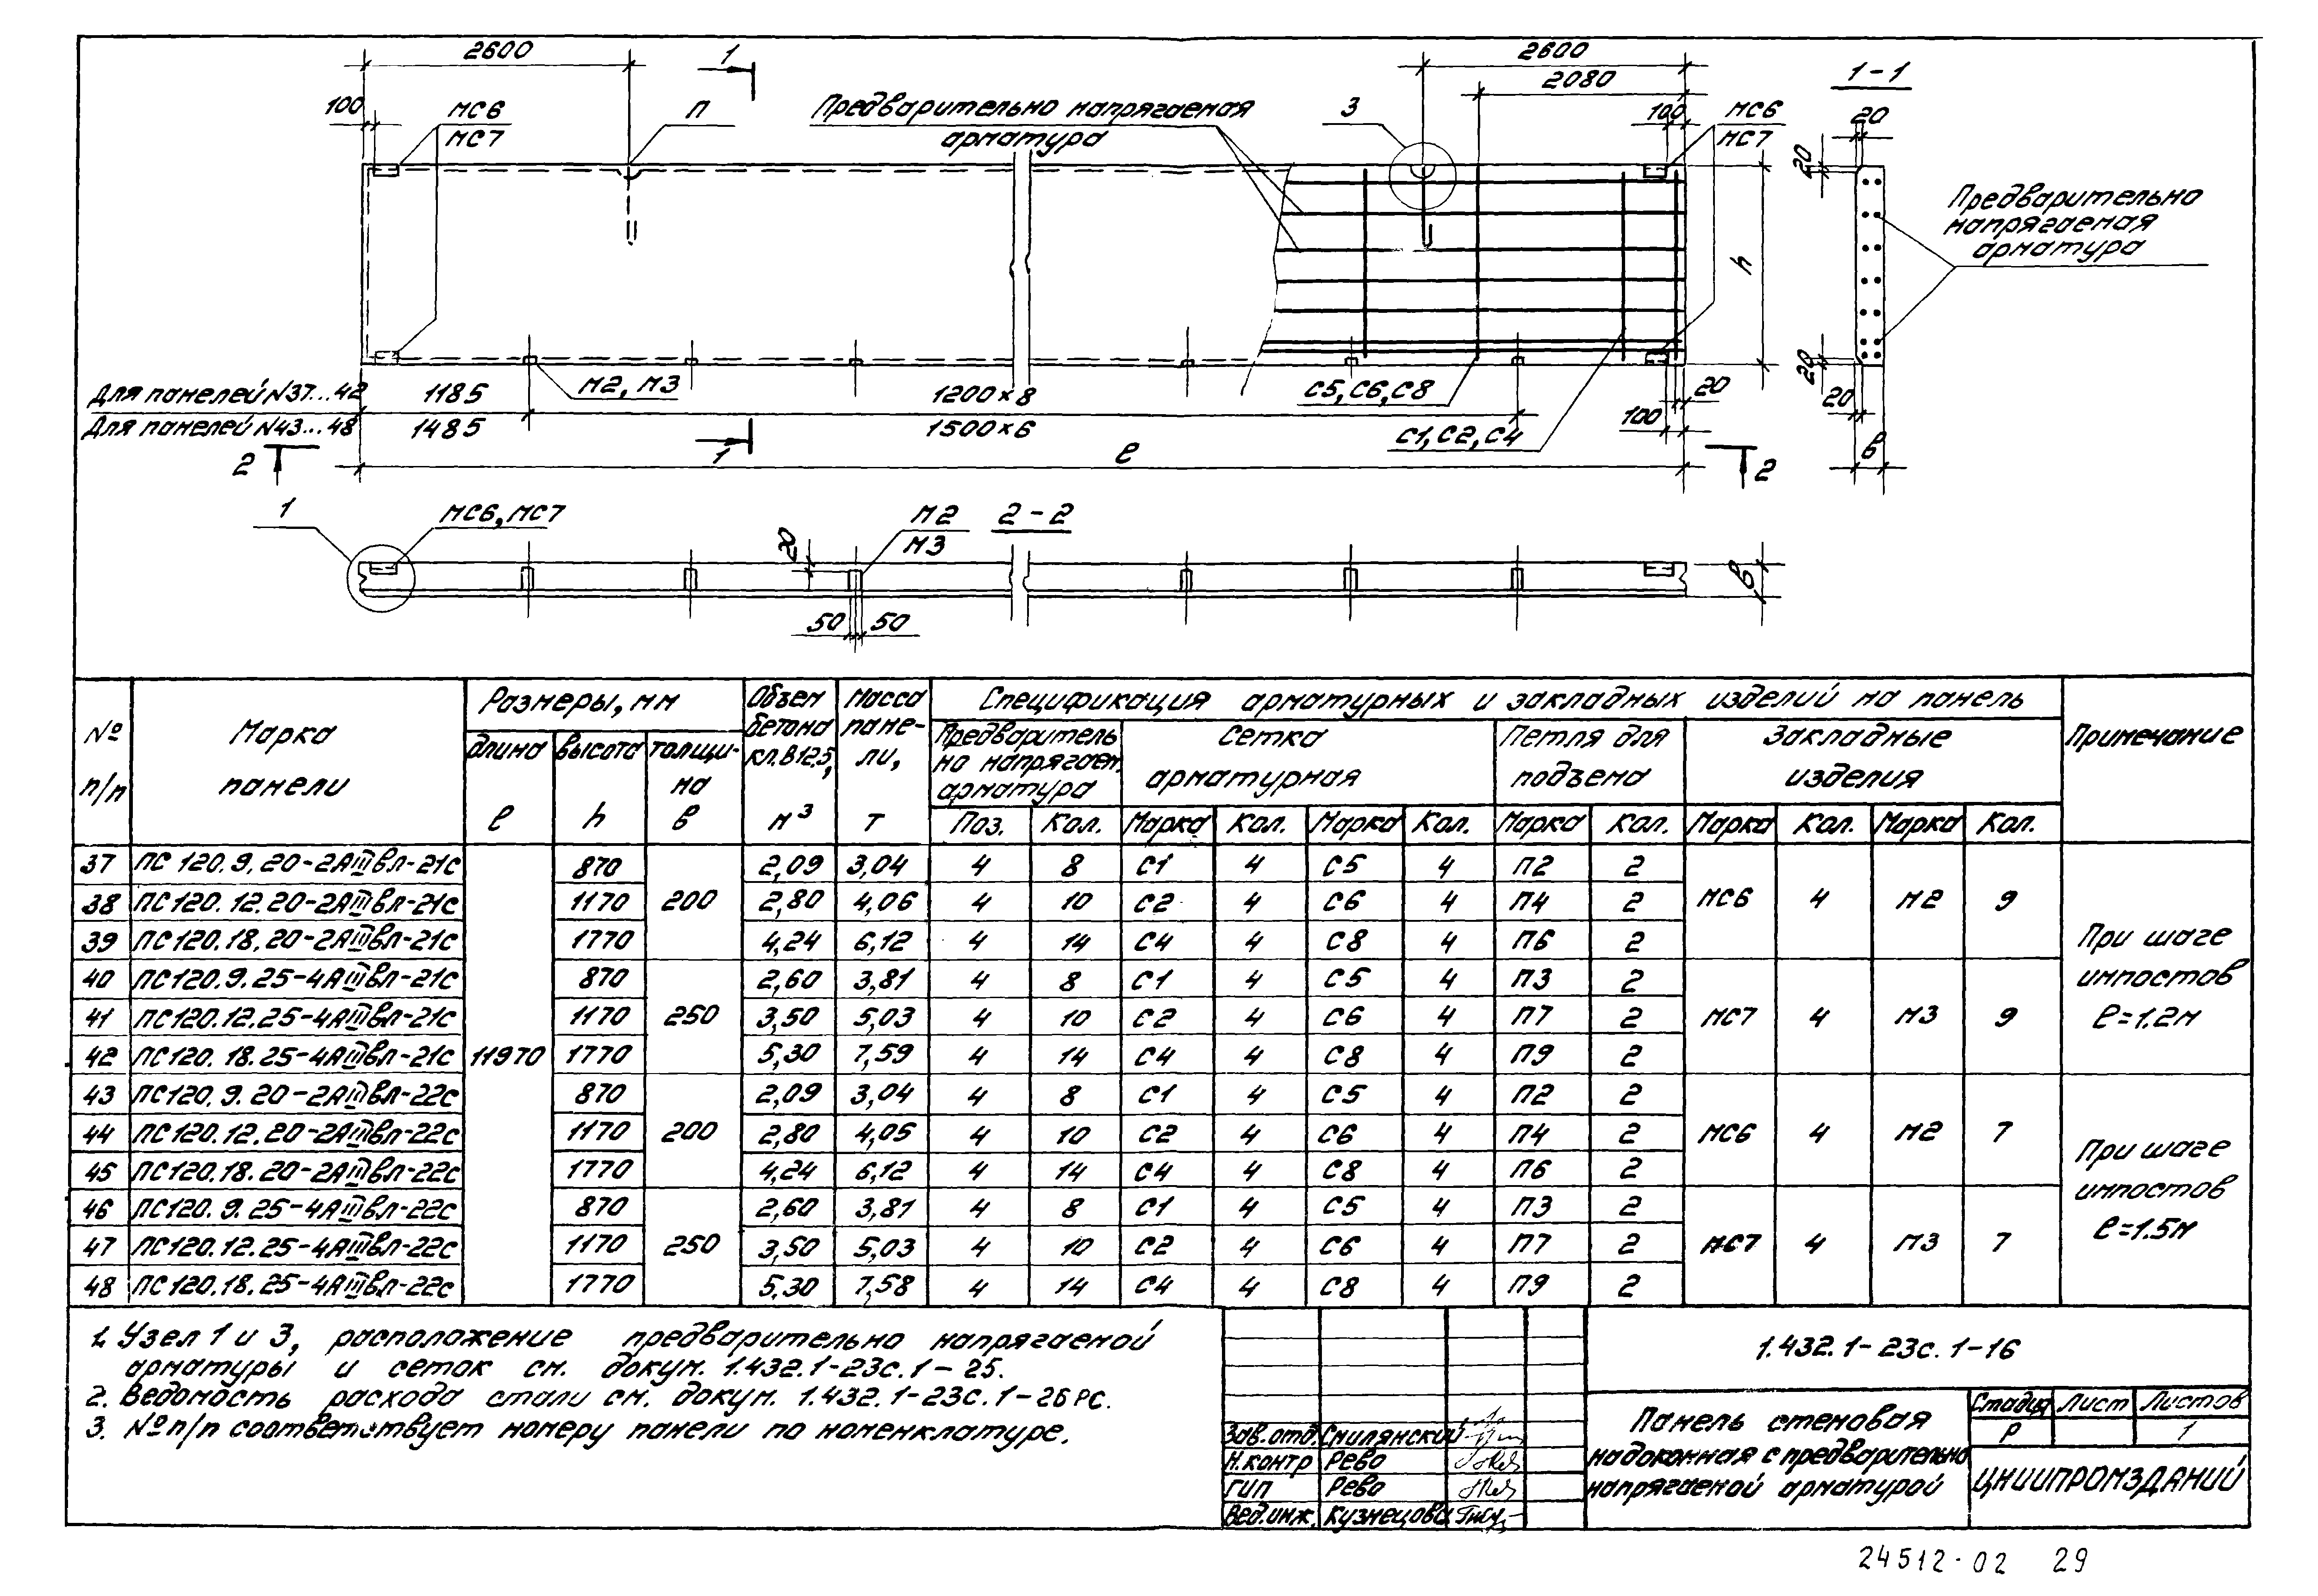 2600
1
2600
2080
1-1
100
МС6
МС7
П
Предварительно напрягаемая
арматура
3
100
МС6
МС7
20
20
Предварительно
напрягаемая
арматура
h
Для панелей N37...42
1185
М2, М3
1200×8
С5, С6, С8
20
20
20
Для панелей N43...48
1485
1500×6
С1, С2, С4
100
2
1
ℓ
2
в
1
МС6, МС7
20
М2
М3
2-2
в
50
50
№ п/п
Марка панели
Размеры, мм
длина ℓ
высота h
толщина в
Объем бетона кл. В12.5, м³
Масса панели, т
Спецификация арматурных и закладных изделий на панель
Предварительно напрягаем. арматура
Сетка арматурная
Петля для подъема
Закладные изделия
Примечание
Поз. Кол. Марка Кол. Марка Кол. Марка Кол. Марка Кол. Марка Кол.
37 ПС 120.9.20-2АIIIвл-21с 870 2,09 3,04 4 8 С1 4 С5 4 П2 2
38 ПС120.12.20-2АIIIвл-21с 1170 200 2,80 4,06 4 10 С2 4 С6 4 П4 2 МС6 4 М2 9
39 ПС120.18.20-2АIIIвл-21с 1770 4,24 6,12 4 14 С4 4 С8 4 П6 2
40 ПС120.9.25-4АIIIвл-21с 870 2,60 3,81 4 8 С1 4 С5 4 П3 2
41 ПС120.12.25-4АIIIвл-21с 1170 250 3,50 5,03 4 10 С2 4 С6 4 П7 2 МС7 4 М3 9
42 ПС120.18.25-4АIIIвл-21с 11970 1770 5,30 7,59 4 14 С4 4 С8 4 П9 2
При шаге
импостов
ℓ=1.2м
43 ПС120.9.20-2АIIIвл-22с 870 2,09 3,04 4 8 С1 4 С5 4 П2 2
44 ПС120.12.20-2АIIIвл-22с 1170 200 2,80 4,05 4 10 С2 4 С6 4 П4 2 МС6 4 М2 7
45 ПС120.18.20-2АIIIвл-22с 1770 4,24 6,12 4 14 С4 4 С8 4 П6 2
46 ПС120.9.25-4АIIIвл-22с 870 2,60 3,81 4 8 С1 4 С5 4 П3 2
47 ПС120.12.25-4АIIIвл-22с 1170 250 3,50 5,03 4 10 С2 4 С6 4 П7 2 МС7 4 М3 7
48 ПС120.18.25-4АIIIвл-22с 1770 5.30 7,58 4 14 С4 4 С8 4 П9 2
При шаге
импостов
ℓ=1.5м
1. Узел 1 и 3, расположение предварительно напрягаемой
арматуры и сеток см. докум. 1.432.1-23с.1-25.
2. Ведомость расхода стали см. докум. 1.432.1-23с.1-26РС.
3. № п/п соответствует номеру панели по номенклатуре.
1.432.1-23с.1-16
Зав.отд. Смилянский
Н.контр Рево
ГИП Рево
Вед.инж. Кузнецова
Панель стеновая
надоконная с предварительно
напрягаемой арматурой
Стадия Лист Листов
Р 1
ЦНИИПРОМЗДАНИЙ
24512-02 29